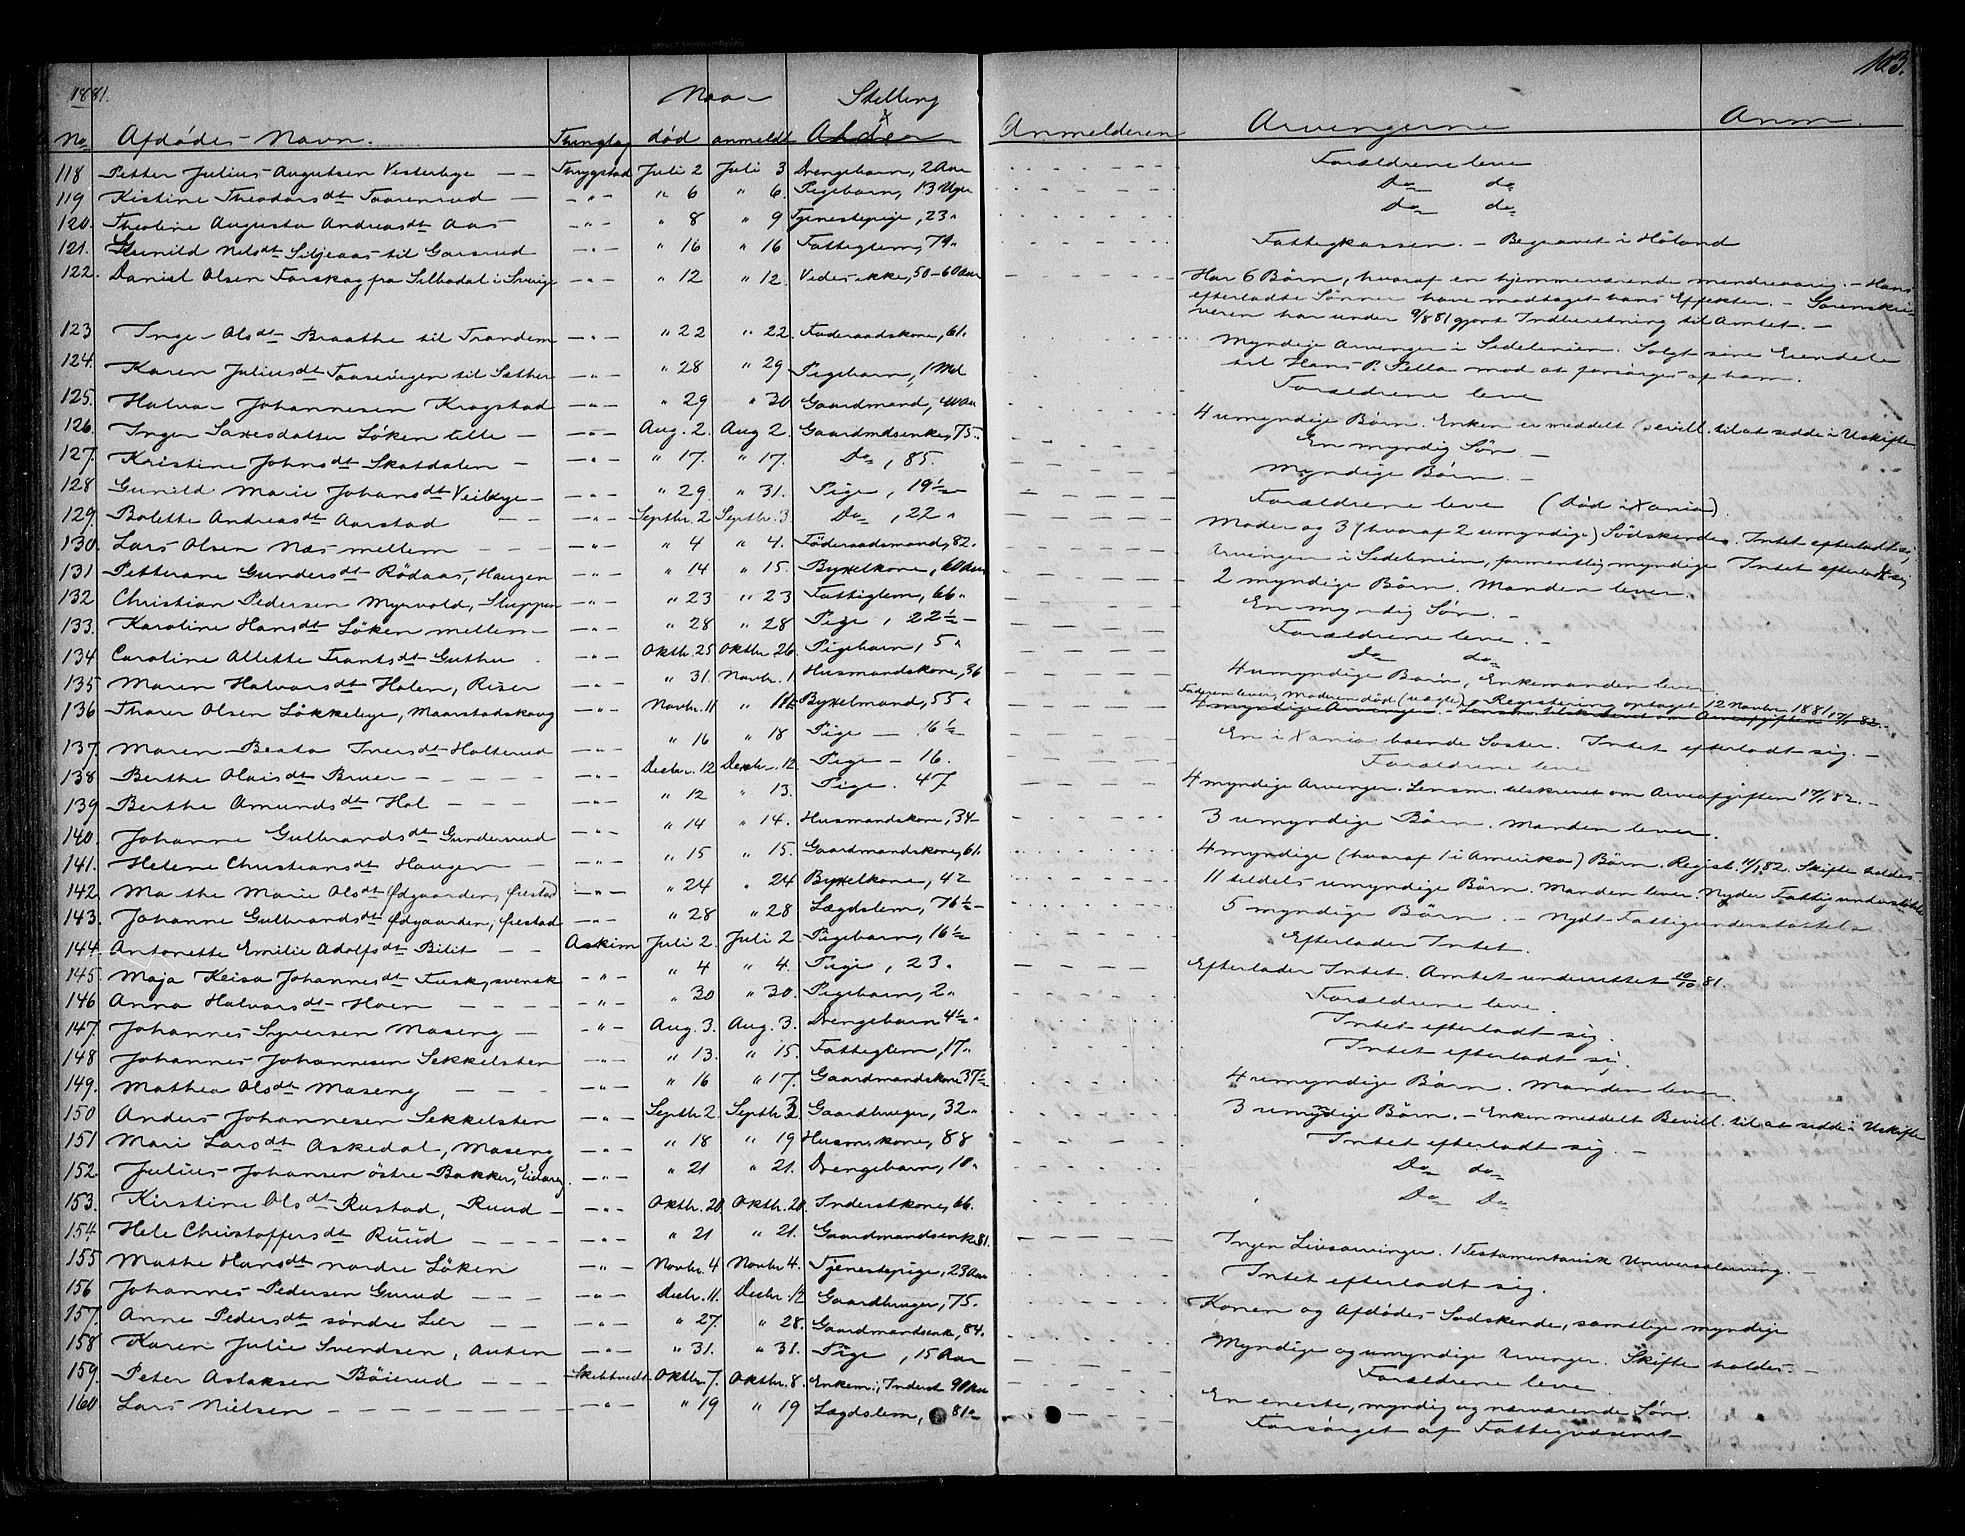 103.
1881.
Naar
Stelling
No Afdødes Navn. Thinglag død anmeldt Alder Anmelderen Arvingerne Anm.
118 Petter Julius Augutsen Vesterbye — — Thrygstad Juli 2 Juli 3 Drengebarn, 2 Aar Forældrene leve
119 Kistine Theodorsdt Taarenrud — - " - " 6 " 6. Pigebarn, 13 Uger Do do
120. Theoline Augusta Andreasdt Aas - " - " 8 " 9 Tjenestepige, 23 " Do do
121. Gunild Nilsdt Siljeaas til Garsrud - " - " 16 " 16 Fattiglem, 79 " Fattigkassen. — Begravet i Høland
122. Daniel Olsen Forskog fra Silbodal i Sverige - " - " 12 " 12. Vides ikke, 50-60 Aar Har 6 Børn, hvoraf en hjemmeværende mindreaarig. — Hans
efterladte Sønner have modtaget hans Effekter. — Sorenskri-
veren har under 9/8 81 gjort Indberetning til Amtet. —
123 Inger Olsdt Braathe til Trandem - " - " 22 " 22. Foderaadskone, 61. Myndige Arvinger i Sidelinien. Solgt sine Eiendele
til Hans P. Fella mod at forsørges af ham.
124. Karen Juliusdt Taasevigen til Sæther - " - " 28 " 29 Pigebarn, 1 Md Forældrene leve
125. Halvor Johannesen Kragstad - " - " 29 " 30 Gaardmand, 40 Aar 4 umyndige Børn. Enken er meddelt Bevill. til at sidde i Uskifte
126. Inger Larsdatter Løken lille — - " - Aug. 2. Aug 2. Gaardmdsenke, 75. En myndig Søn —
127. Kristine Johnsdt Skatdalen — - " - " 17. " 17. Do, 85. Myndige Børn. —
128 Gunild Marie Johansdt Veilbye — - " - " 29 " 31. Pige, 19½ Forældrene leve (død i Xania).
129. Bolette Andreasdt Aarstad — — - " - Septbr. 2 Septbr. 3 Do, 22 " Moder og 3 (hvoraf 2 umyndige) Sødskende. Intet efterladt sig
130. Lars Olsen Næs mellem — — — - " - " 4 " 4. Føderaadsmand, 82. Arvinger i Sidelinien, formentlig myndige. Intet efterladt sig
131 Petterane Gundersdt Rødaas, Haugen - " - " 14 " 15. Bygselkone, 60 Aar 2 myndige Børn. Manden lever.
132 Christian Pedersen Myrvold, Stuppen - " - " 23 " 23 Fattiglem, 66 " En myndig Søn. —
133. Karoline Hansdt Løken mellem — - " - " 28 " 28 Pige, 22½ — Forældrene leve. —
134 Caroline Allette Frantsdt Guthu - " - Oktbr. 25 Oktbr 26 Pigebarn, 5 " Do do
135 Maren Halvorsdt Holen, Riser - " - " 31. Novbr. 1 Husmandskone, 36 4 umyndige Børn, Enkemanden lever.
136 Thorer Olsen Løkkebye, Maarstadskoug - " - Novbr. 11 " 11. Bygselmand, 55 " Faderen lever, Moderen død (uægte). Registrering optaget 12 Novbr 1881.
4 myndige Arvinger. Lensm. tilskrevet om Arveafgiften 17/1 82. —
137. Maren Beata Iversdt Halterud - " - " 16 " 18 Pige — 6½ En i Xania boende Søster. Intet efterladt sig. —
138 Berthe Olaisdt Bruer — — — - " - Decbr. 12 Decbr. 12 Pige — 16. Forældrene leve
139 Berthe Amundsdt Hol — — — - " - " 12 " 13. Pige. 47 4 myndige Arvinger. Lensm. tilskrevet om Arveafgiften 17/1 82. —
140. Johanne Gulbrandsdt Gunderrud - " - " 14 " 14. Husmandskone, 34 — 3 umyndige Børn. Manden lever.
141. Helene Christiansdt Haugen — - " - " 15 " 15. Gaardmandskone, 61. 4 myndige (hvoraf 1 i Amerika) Børn. Regist. 11/1 82. Skifte holdes.
142. Mathe Marie Olsdt Ødgaarden, Øiestad - " - " 24 " 24 Bygselkone, 42 11 tildels umyndige Børn. Manden lever. Nyder Fattigunderstøttelse
143. Johanne Gulbrandsdt Ødgaarden, Øiestad - " - " 28 " 28 Lægdslem, 76½ — 5 myndige Børn. — Nydt Fattigunderstøttelse
144. Antonette Emilie Adolfsdt Bilit — — Askim Juli 2. Juli 2 Pigebarn, 16½ Efterlader Intet.
145. Maja Keisa Johannesdt Fusk, svensk - " - " 4 " 4. Pige, 23. Efterlader Intet. Amtet underrettet 10/10 81.
146 Anna Halvorsdt Hoen — - " - " 30 " 30. Pigebarn, 2 " Forældrene leve.
147. Johannes Syversen Maseng — - " - Aug. 3. Aug. 3. Drengebarn 4½ " Intet efterladt sig.
148 Johannes Johannesen Sekkelsten - " - " 13. " 15. Fattiglem, 17 " Intet efterladt sig.
149. Mathea Olsdt Maseng — — - " - " 16 " 17. Gaardmandskone 37½ 4 umyndige Børn. Manden lever.
150 Anders Johannesen Sekkelsten - " - Septbr 2 Septbr. 3 Gaardbruger, 32 " 3 umyndige Børn. — Enken meddelt Bevill. til at sidde i Uskifte
151 Mari Larsdt Askedal, Maseng - " - " 18 " 19 Husm.kone, 88 Intet efterladt sig. —
152. Julius Johansen østre Bakker, Eidberg - " - " 21 " 21. Drengebarn, 10 " Do do
153. Kirstine Olsdt Rustad, Ruud — - " - Oktbr. 20 Oktbr. 20. Inderstkone, 66. Do Do
154 Hele Christoffersdt Ruud — — — - " - " 21 " 21. Gaardmandsenke 81. Ingen Livsarvinger. 1 Testamentarisk Universalarving. —
155 Mathe Hansdt nordre Løken - " - Novbr. 4 Novbr 4. Tjenestepige, 23 Aar Intet efterladt sig.
156 Johannes Pedersen Gurud — — — - " - Decbr. 11. Decbr. 12 Gaardbruger, 75. Konen og Afdødes Sødskende, samtlige myndige
157. Anne Pedersdt søndre Lier — — - " - " 27. " 28. Gaardmandsenke, 84. Myndige og umyndige Arvinger. Skifte holdes —
158 Karen Julie Svendsen, Auten - " - " 31. " 31. Pige, 15 Aar Forældrene leve.
159. Peter Aslaksen Böierud — — — Skibtvedt Oktbr. 7. Oktbr. 8. Enkem., Inderst 90 Aar En eneste, myndig og nærværende Søn.
160 Lars Nielsen — — — — — - " - " 19 " 19 Lægdslem, 81 Forsørget af Fattigvæsenet